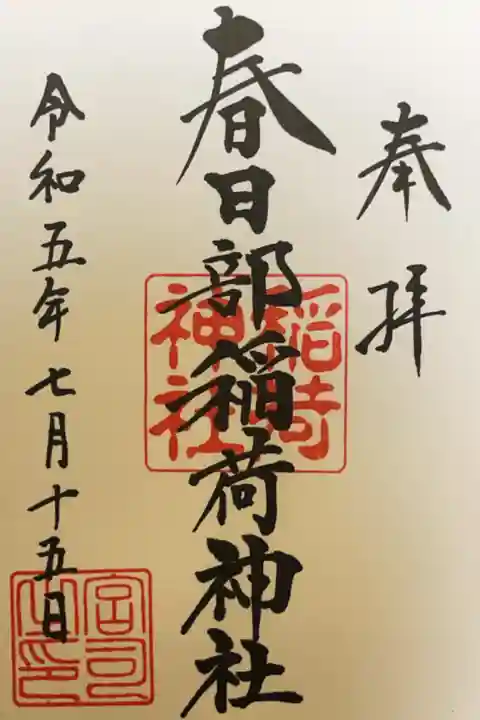 奉拝
春日部稲荷神社
令和五年七月十五日
神社
宮司之印